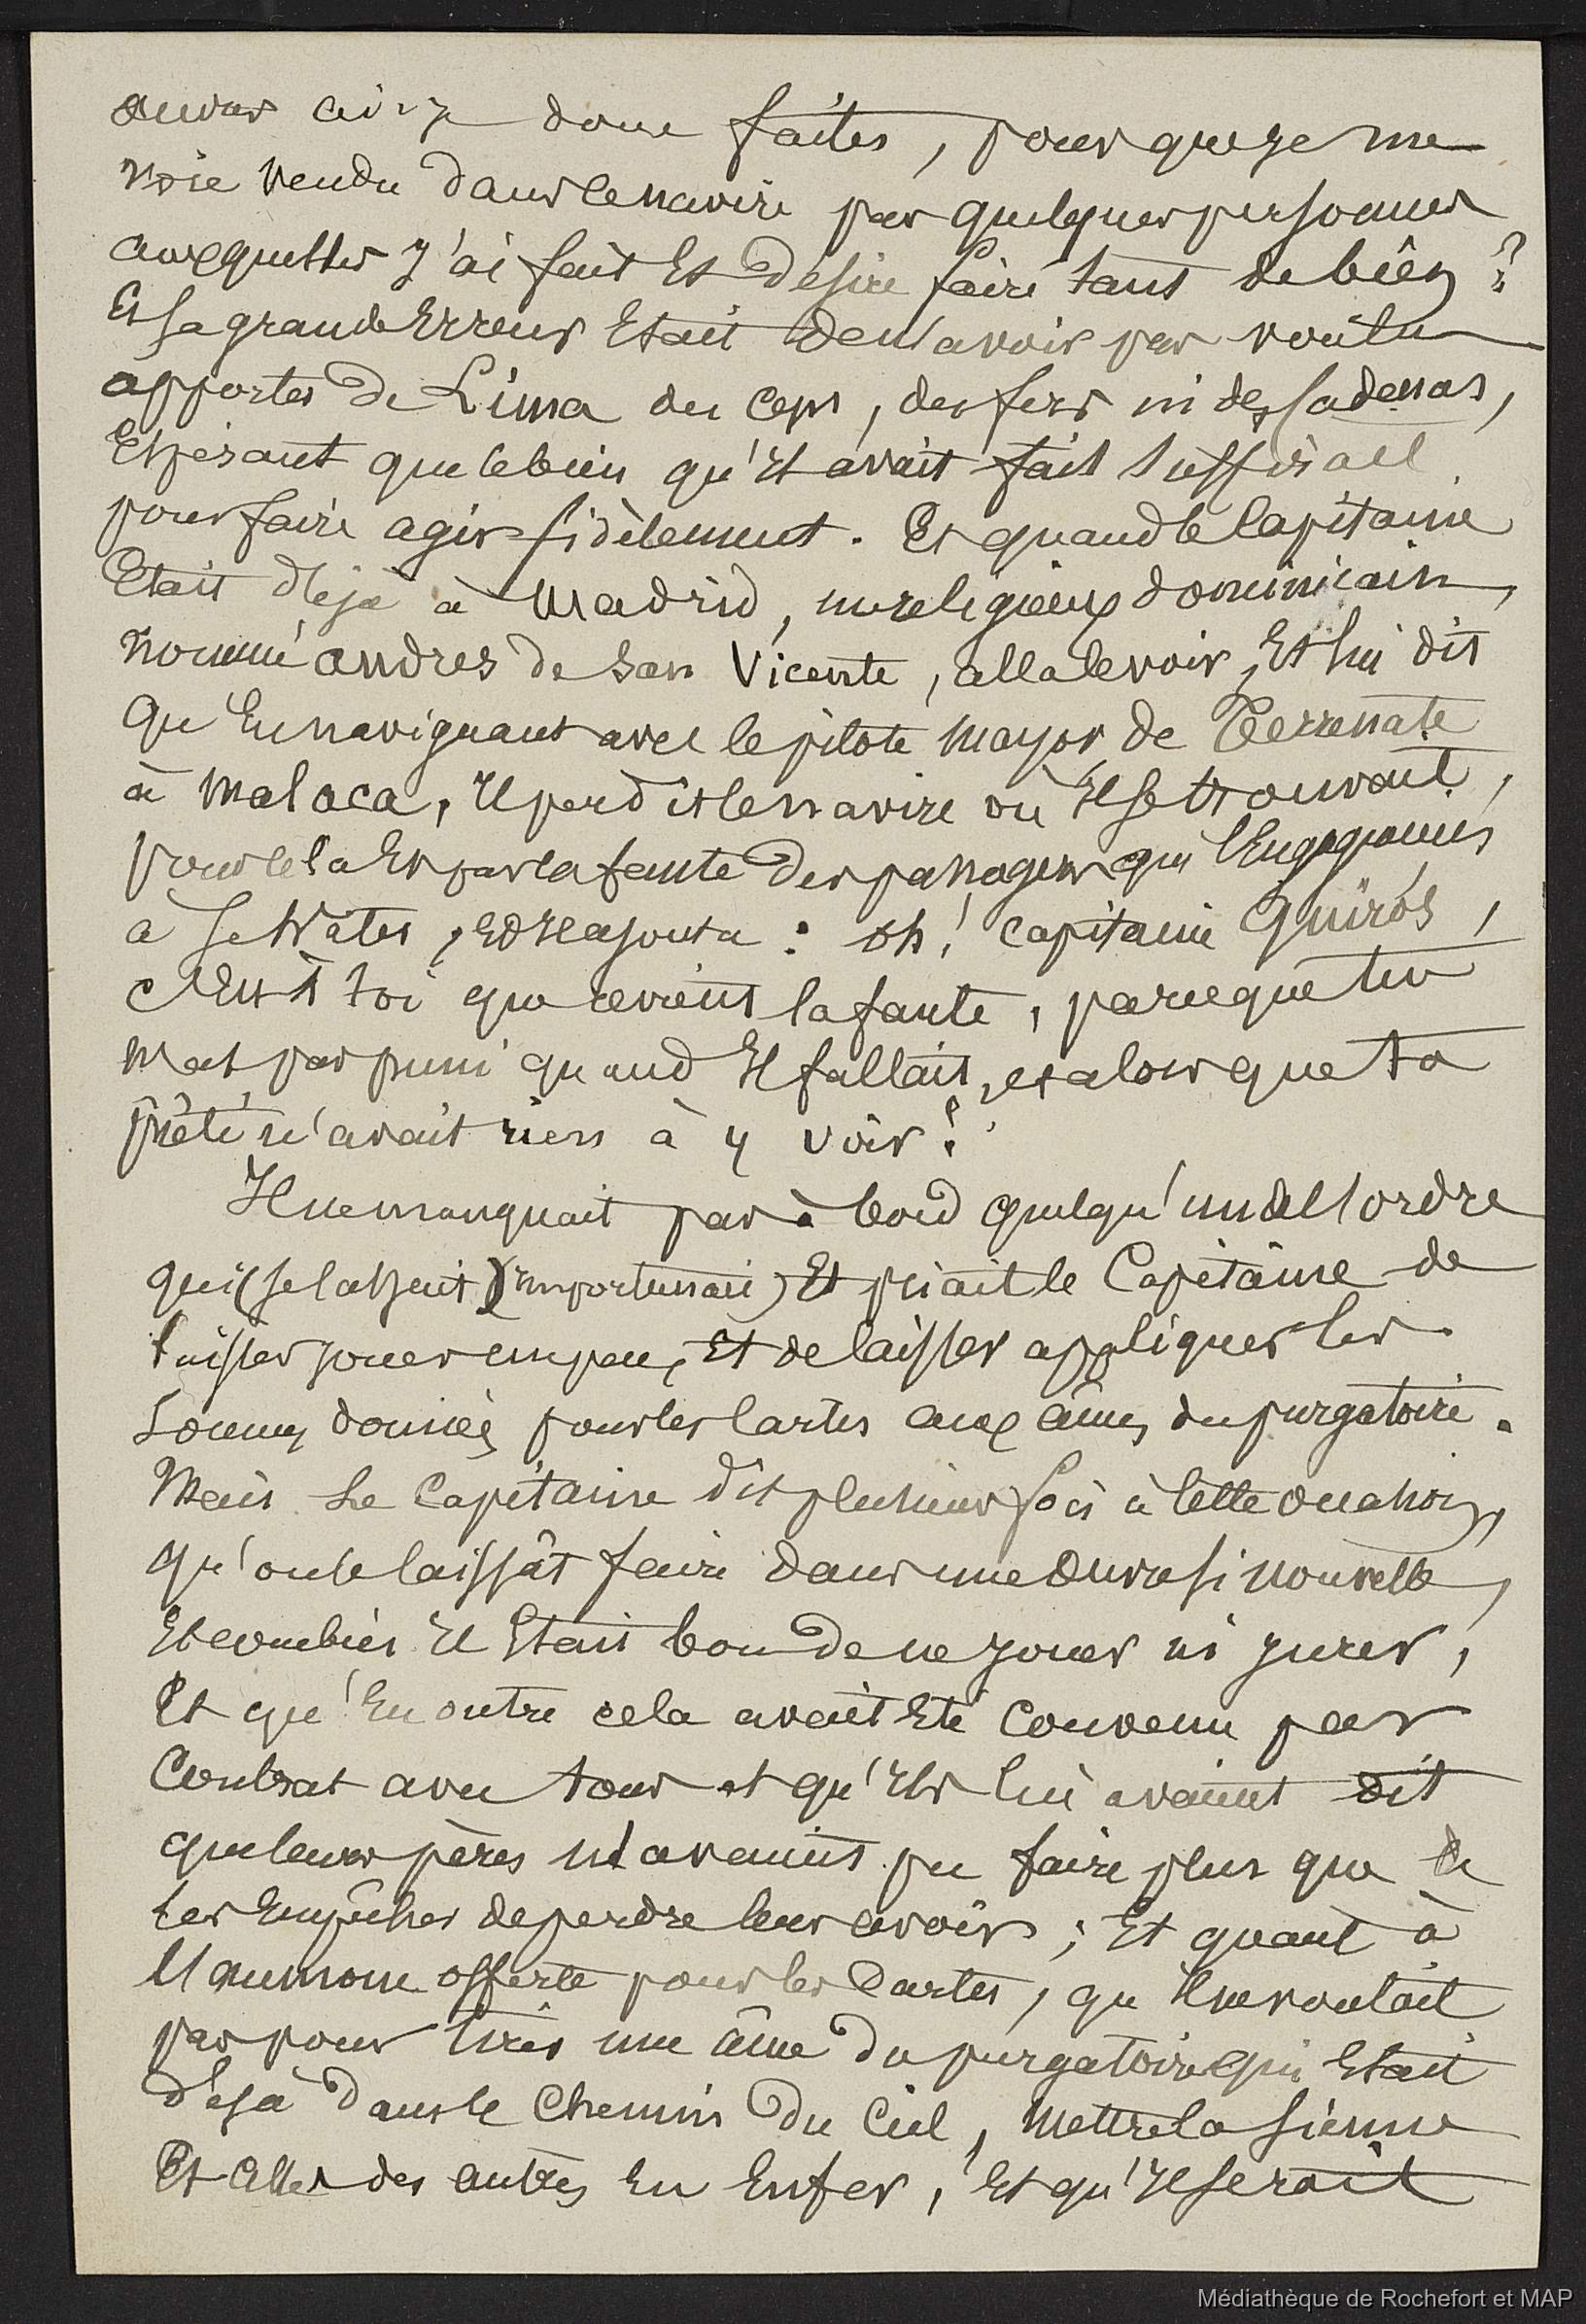 œuvres ai-je donc faites, pour que je me
voie vendu dans le navire par quelques personnes
auxquelles j'ai fait Et désiré faire tant de bien ?
Et sa grande Erreur Etait de n'avoir pas voulu
apporter de Lima des ceps, des fers ni des cadenas,
Espérant que le bien qu'il avait fait suffirait
pour faire agir fidèlement. Et quand le Capitaine
Etait déjà à Madrid, un religieux dominicain,
nommé Andres de San Vicente, alla le voir, Et lui dit
Qu'En naviguant avec le pilote mayor de Terrenate
à Malaca, Il perdit le navire où Il se trouvait,
pour cela Et par la faute des passagers qui
à se hâter, Et Il ajouta : oh ! Capitaine Quiros,
c'est à toi que revient la faute, parce que tu
n'as pas puni quand Il fallait, et alors que ta
piété n'avait rien à y voir !
Il ne manquait pas à bord quelqu'un de l'ordre
qui (se lassait) (importunait) Et priait le Capitaine de
laisser jouer un peu, Et de laisser appliquer les
sommes données pour les cartes aux âmes du purgatoire.
Mais Le Capitaine dit plusieurs fois à cette occasion,
qu'on le laissât faire dans une œuvre si nouvelle,
Et combien Il Etait bon de ne jouer ni jurer,
Et qu'En outre cela avait Eté convenu par
Contrat avec tous et qu'Ils lui avaient dit
que leurs pères n'avaient pu faire plus que de
les Empêcher de perdre leur avoir ; Et quant à
l'aumone offerte pour les Cartes, qu'Il ne voulait
pas pour tirer une âme du purgatoire qui Etait
déjà dans le Chemin du Ciel, mettre la sienne
Et celles des autres En Enfer, Et qu'Il serait
Médiathèque de Rochefort et MAP